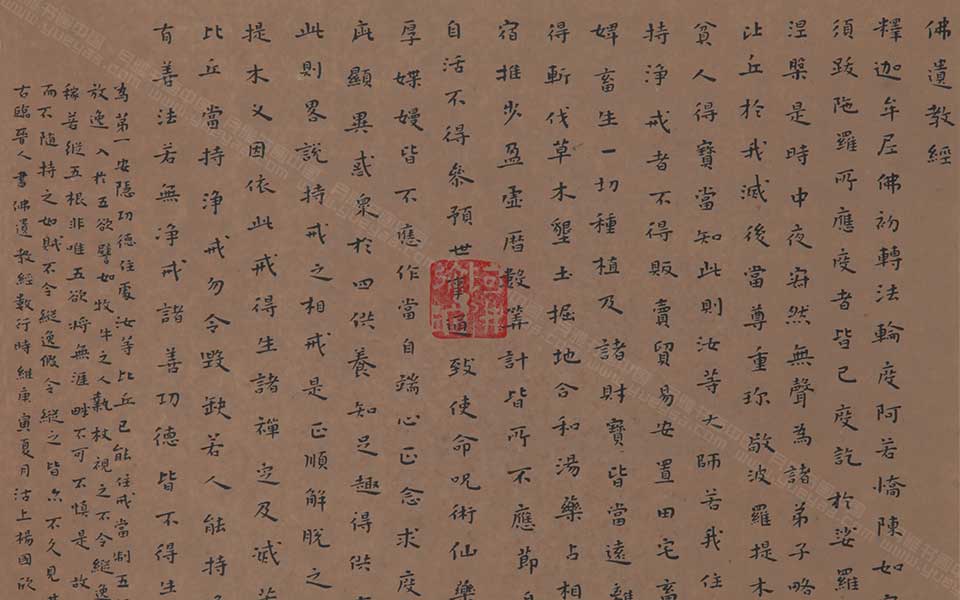 佛遺教經
釋迦牟尼佛初轉法輪度阿若憍陳如
須跋陁羅所應度者皆已度訖於娑羅
涅槃是時中夜寂然無聲為諸弟子略
比丘於我滅後當尊重珎敬波羅提木
貧人得寶當知此則汝等大師若我住
持淨戒者不得販賣貿易安置田宅畜
婢畜生一切種植及諸財寶皆當遠離
得斬伐草木墾土掘地合和湯藥占相
宿推步盈虛曆數筭計皆所不應節
自活不得參預世事通致使命呪術仙藥
厚媟嫚皆不應作當自端心正念求度
疵顯異惑衆於四供養知足趣得供
此則畧說持戒之相戒是正順解脫之
提木义因依此戒得生諸禪定及滅
比丘當持淨戒勿令毀缺若人能持
有善法若無净戒諸善功德皆不得生
為第一安隱功德住處汝等比丘已能住戒當制五
放逸入於五欲譬如牧牛之人執杖視之不令縱逸
稼若縱五根非唯五欲將無涯畔不可不慎是故
而不随持之如賊不令縱逸假令縱之皆亦不久見
古臨晉人書佛遺教經數行時維庚寅夏月沽上楊國欣